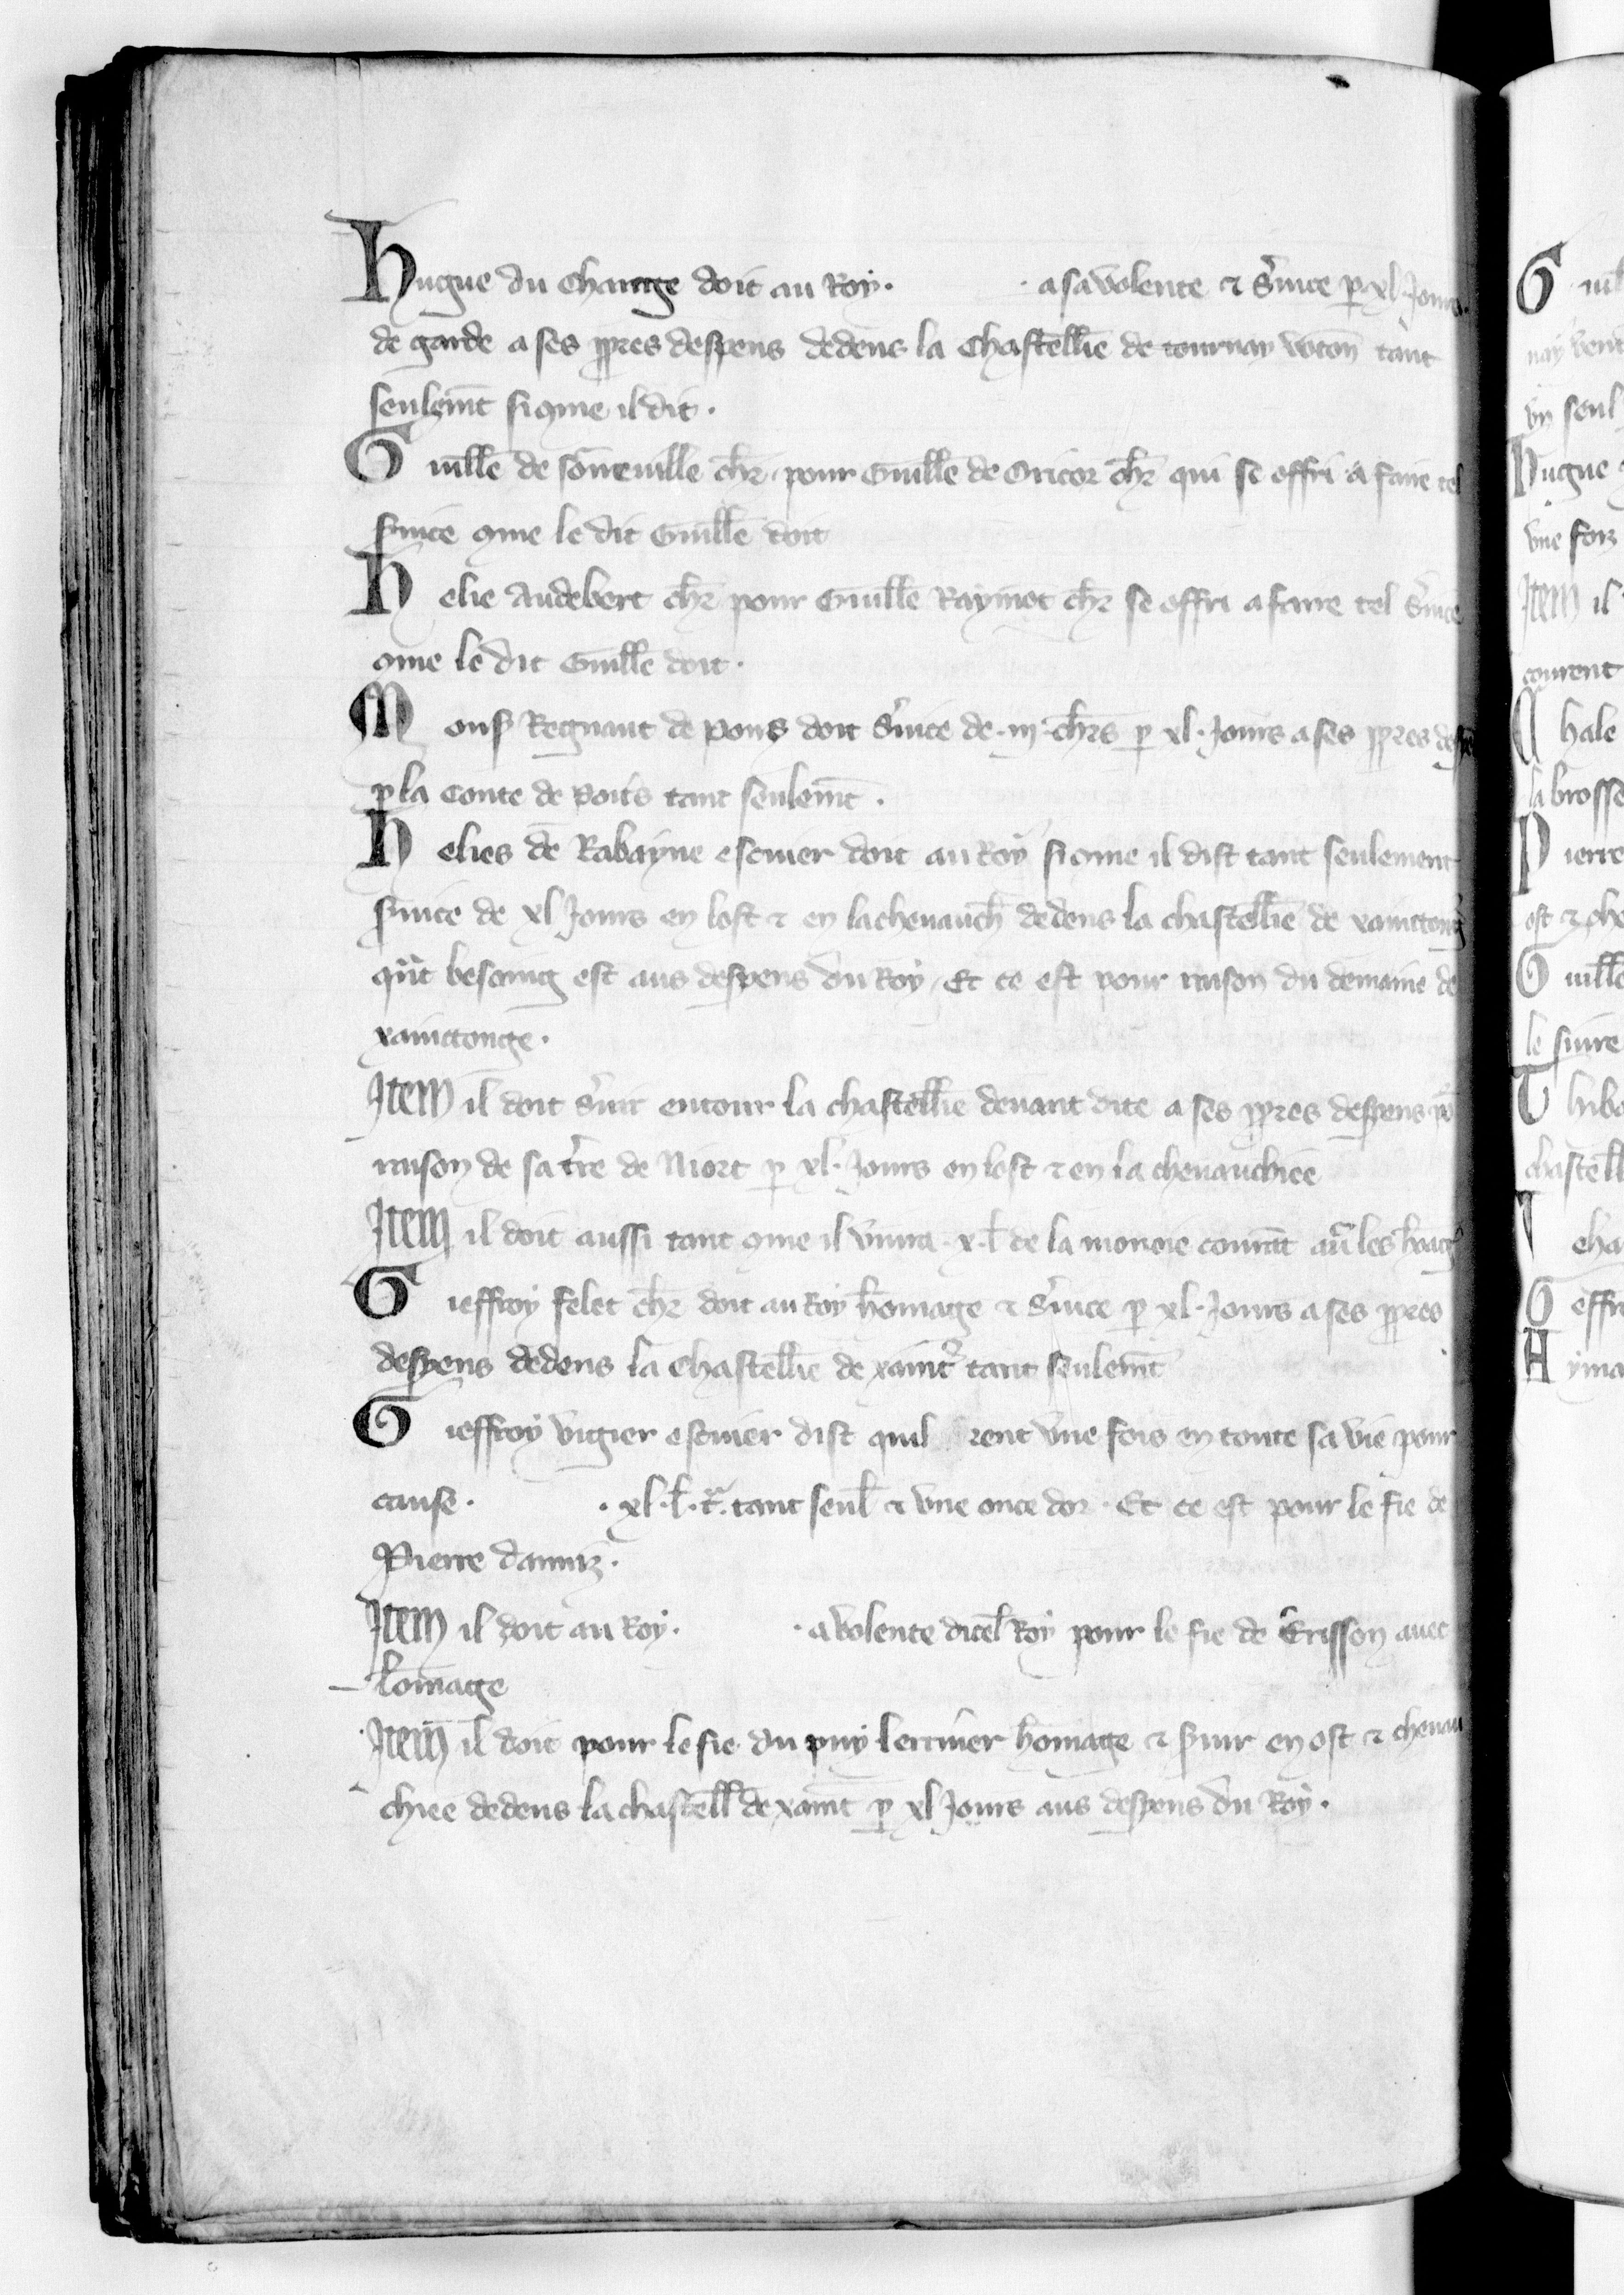 Hugue du Change doit au Roy. . a sa volente ⁊ s̾uice p̲ xl. Jours.
de garde a ses pp̲res despens dedens la Chastell̄ie de tournay vton̄ tant
seulem̄t si ꝯme il dit.
Guill̄e de son̄euille ch̄r pour Guill̄e de Oricor ch̄r qui se offri a faire tel
s̾uice ꝯme le dit Guill̄e doit
Helie Audebert ch̄r pour Guill̄e Raymot ch̄r se offri a faire tel s̾uice
ꝯme le dit Guill̄e doit.
Mons̾ Regnaut de pons doit s̾uice de .iij. ch̄rs p̲ xl. Jours a ses pp̲res
p̲ la Conte de Poit̾s tant seulem̄t.
Helies de Rabayne escuier doit au Roy si ꝯme il dist tant seulement
s̾uice de xl Jours en lost ⁊ en la cheuauch̄ dedens la chastell̄ie de xainctong̾
qūt besoing est aus despens du Roy. Et ce est pour raison du demaine de
xainctonge.
Item il doit s̾uir entour la chastell̄ie deuant dite a ses pp̲res despens po̾
raison de sa t̾re de Niort p̲ xl. Jours en lost ⁊ en la cheuauchiee
Item il doit aussi tant ꝯme il viura .x. l̄ de la monoie courāt
Gieffroy felet ch̄r doit au Roy hom̄age ⁊ s̾uice p̲ xl. Jours a ses pp̲res
despens dedens la Chastell̄ie de xainct̾ tant seulem̄t
Gieffroy vigier escuier dist quil rent vne fois en toute sa vie pour
cause. . xl. l̄. t̾. tant seul̄ ⁊ vne once dor. Et ce est pour le fie de
Pierre dauniz.
Item il doit au Roy. . a volente dicel̄ Roy pour le fie de Erisson auec
lom̄age
Item il doit pour le fie du puy hom̄age ⁊ s̾uir en ost ⁊ cheuau
chiee dedens la chastell̄ de xainct̄ p̲ xl Jours aus despens du Roy.
G uill
nay
vn seul
Hugue
vne foiz
Item il
courent
hale
la brosse
Pierre
ost ⁊ che
Guill̄e
le suire
Thibo
chastell̄
eha
Geffro
Ayma